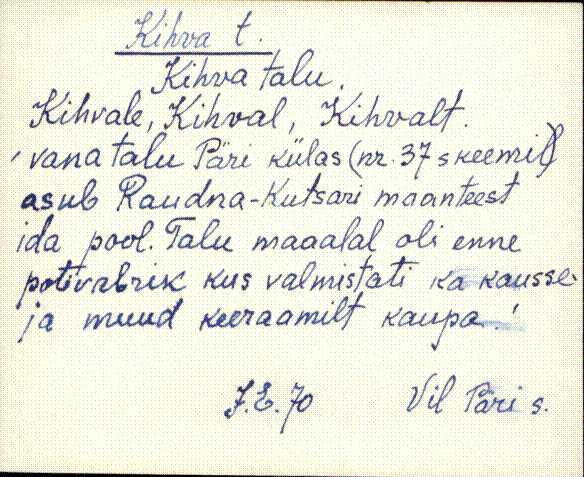 Kihva t.
Kihva talu.
Kihvale, Kihval, Kihvalt.
vana talu Päri külas (nr. 37 skeemil)
asub Raudna-Kutsari maanteest
ida pool. Talu maaalal oli enne
potivabrik kus valmistati ka kausse
ja muud keeraamilt kaupa.
J.E. 70 Vil Päri s.